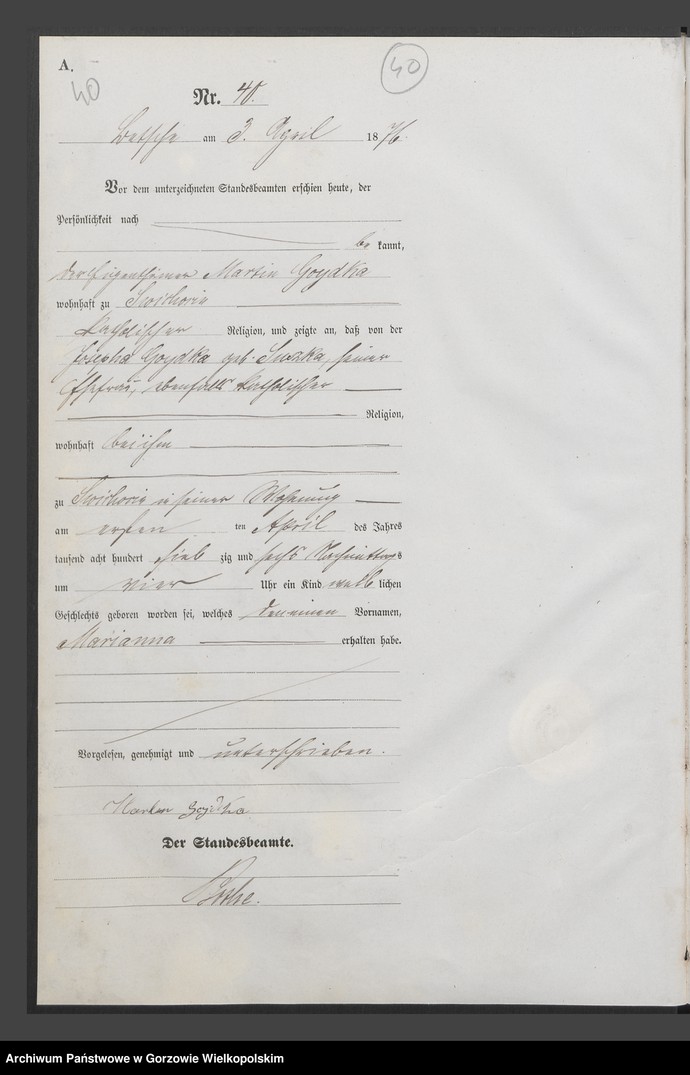 A.
40
40
Nr. 40.
Betsche am 3. April 1876.
Vor dem unterzeichneten Standesbeamten erschien heute, der
Persönlichkeit nach
be kannt,
der Eigenthümer Martin Goydka
wohnhaft zu
katholischer Religion, und zeigte an, daß von der
Josepha Goydka geb. seiner
Ehefrau, ebenfalls katholischer
Religion,
wohnhaft bei ihm
zu in seiner Wohnung
am ersten ten April des Jahres
tausend acht hundert sieb zig und sechs Nachmittags
um vier Uhr ein Kind weib lichen
Geschlechts geboren worden sei, welches den einen Vornamen,
Marianna erhalten habe.
Vorgelesen, genehmigt und unterschrieben.
Goydka
Der Standesbeamte.
Archiwum Państwowe w Gorzowie Wielkopolskim